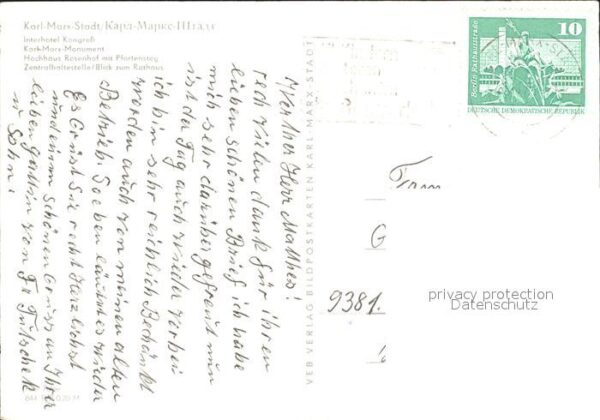 Karl-Marx-Stadt/Карл-Маркс-Штадт
Interhotel Kongreß
Karl-Marx-Monument
Hochhaus Rosenhof mit Pfortensteg
Zentralhaltestelle/Blick zum Rathaus
Werther Herr Matthes!
recht vielen dank für ihren
lieben schönen Brief ich habe
mich sehr darüber gefreut nun
ist der Tag auch wieder vorbei
ich bin sehr reichlich Beschänkt
worden auch von meinen alten
Betrieb. Soeben läutet es wieder
Es Grüst Sie recht Herzlichst
und einen schönen Gruss an Ihrer
lieben gattin von Fr.
u Sohn!
VEB VERLAG BILDPOSTKARTEN KARL-MARX-STADT
10
Berlin, Rathausstrasse
DEUTSCHE DEMOKRATISCHE REPUBLIK
G
9381.
privacy protection
Datenschutz